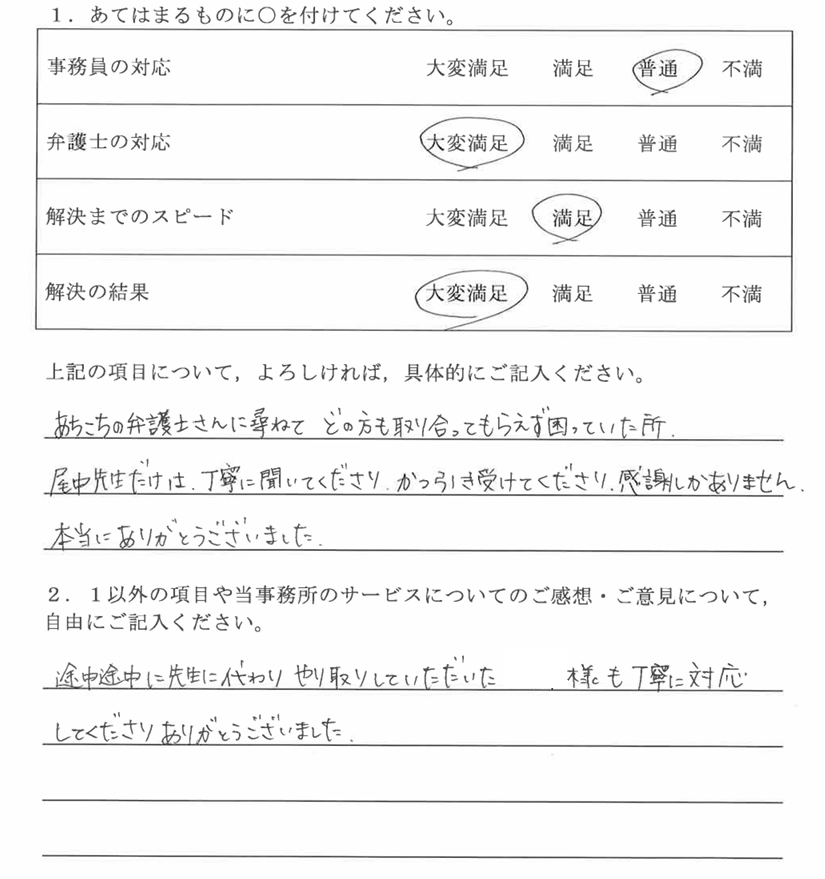 １．あてはまるものに○を付けてください。
事務員の対応 大変満足 満足 普通 不満
弁護士の対応 大変満足 満足 普通 不満
解決までのスピード 大変満足 満足 普通 不満
解決の結果 大変満足 満足 普通 不満
上記の項目について，よろしければ，具体的にご記入ください。
あちこちの弁護士さんに尋ねて どの方も取り合ってもらえず困っていた所.
尾中先生だけは.丁寧に聞いてくださり.かつ引き受けてくださり.感謝しかありません.
本当にありがとうございました.
２．１以外の項目や当事務所のサービスについてのご感想・ご意見について，
自由にご記入ください。
途中途中に先生に代わり やり取りしていただいた . 様も丁寧に対応
してくださりありがとうございました.